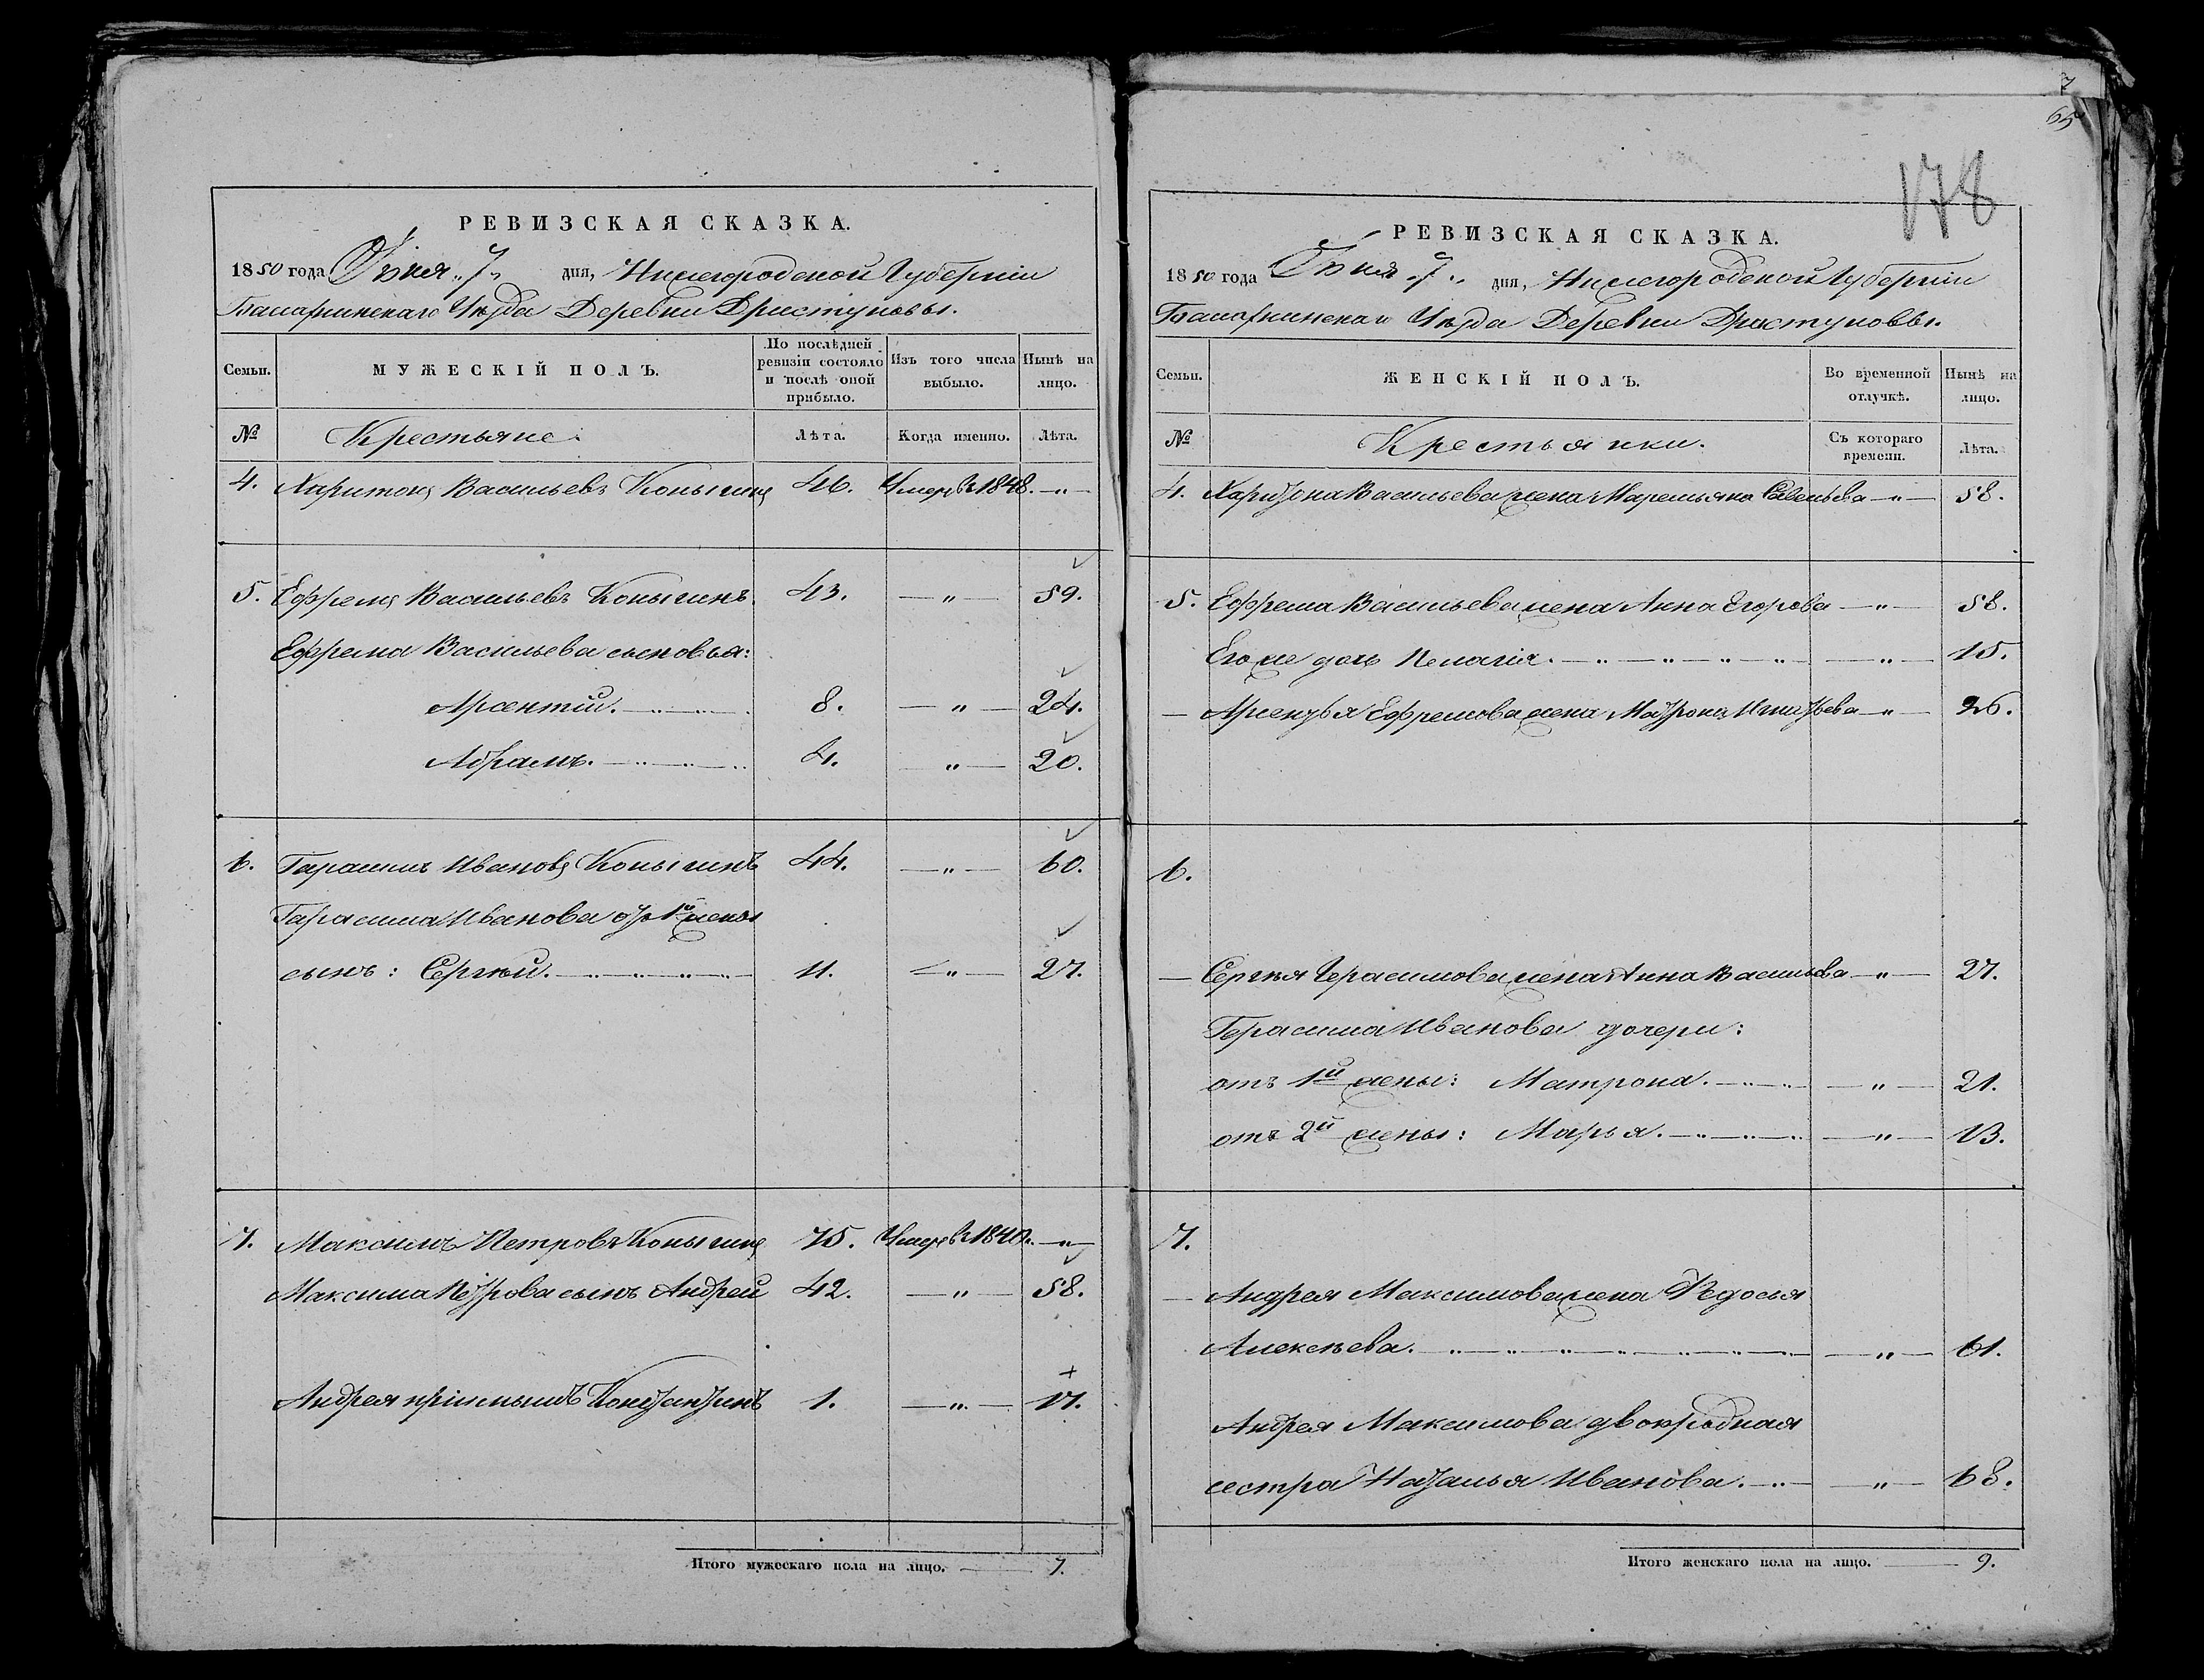 РЕВИЗСКАЯ СКАЗКА.
1850 года Іюня „7„ дня, Нижегородской Губерніи
Балахнинскаго Уѣзда Деревни Дристуновы.
Семьи.
МУЖЕСКІЙ ПОЛЪ.
По послѣдней ревизіи состояло и послѣ оной прибыло.
Изъ того числа выбыло.
Нынѣ на лицо.
№ Крестьяне: Лѣта. Когда именно. Лѣта.
4. Харитонъ Васильевъ Копытинъ 46. Умеръ въ 1848. — „ —
5. Ефремъ Васильевъ Копытинъ. 43. — „ — 59.
Ефрема Васильева сыновья:
Арсентій. 8. — „ — 24.
Абрамъ. 4. „ — 20.
6. Гарасимъ Ивановъ Копытинъ 44. — „ — 60.
Гарасима Иванова отъ 1й жены
сынъ: Сергѣй. 11. — „ — 27.
7. Максимъ Петровъ Копытинъ 75. Умеръ въ — „ —
Максима Петрова сынъ Андрей 42. — „ — 58.
Андрея пріемышъ Константинъ 1. — „ — 17.
Итого мужескаго пола на лицо. 7.
7
65
178
РЕВИЗСКАЯ СКАЗКА.
1850 года Іюня „7„ дня, Нижегородской Губерніи
Балахнинскаго Уѣзда Деревни Дристуновы.
Семьи.
ЖЕНСКІЙ ПОЛЪ.
Во временной отлучкѣ.
Нынѣ на лицо.
№ Крестьянки. Съ котораго времени. Лѣта.
4. Харитона Васильева жена Маремьяна Савельева — „ — 58.
5. Ефрема Васильева жена Анна Егорова — „ — 58.
Его же дочь Пелагія. — „ — 15.
— Арсентья Ефремова жена Матрона Игнатьева — „ — 26.
6.
— Сергѣя Герасимова жена Анна Васильева — „ — 27.
Герасима Иванова дочери:
отъ 1й жены: Матрона. — „ — 21.
отъ 2й жены: Марья. — „ — 13.
7.
— Андрея Максимова жена Ѳедосья
Алексѣева. — „ — 61.
Андрея Максимова двоюродная
сестра Наталья Иванова. — „ — 68.
Итого женскаго пола на лицо. 9.